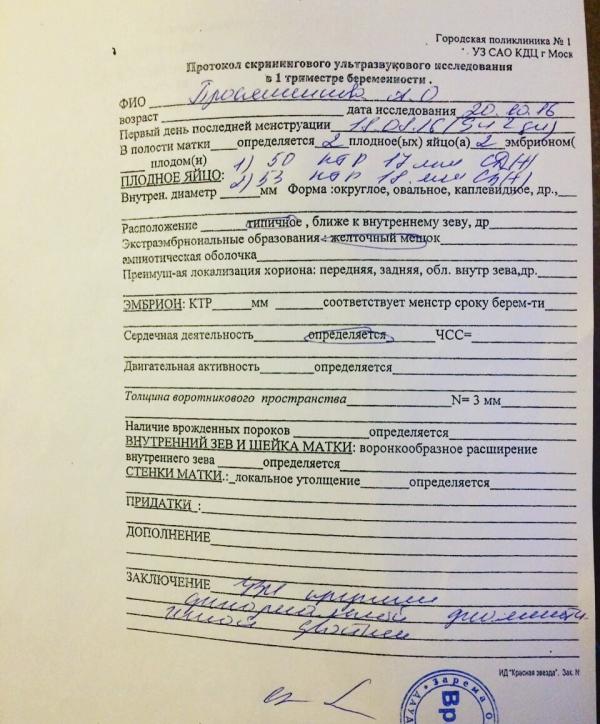 Городская поликлиника № 1
УЗ САО КДЦ г Моск
Протокол скринингового ультразвукового исследования
в 1 триместре беременности .
ФИО
возраст дата исследования 20.10.16
Первый день последней менструации 18.08.16 (9н 2дн)
В полости матки определяется 2 плодное(ых) яйцо(а) 2 эмбрионом(
плодом(и) 1) 50 КТР 17 мм СД(+)
ПЛОДНОЕ ЯЙЦО: 2) 53 КТР 18 мм СД(+)
Внутрен. диаметр мм Форма :округлое, овальное, каплевидное, др.,
Расположение типичное , ближе к внутреннему зеву, др
Экстраэмбриональные образования : желточный мешок
амниотическая оболочка
Преимущ-ая локализация хориона: передняя, задняя, обл. внутр зева,др.
ЭМБРИОН: КТР мм соответствует менстр сроку берем-ти
Сердечная деятельность определяется ЧСС=
Двигательная активность определяется
Толщина воротникового пространства N= 3 мм
Наличие врожденных пороков определяется
ВНУТРЕННИЙ ЗЕВ И ШЕЙКА МАТКИ: воронкообразное расширение
внутреннего зева определяется
СТЕНКИ МАТКИ.: локальное утолщение определяется
ПРИДАТКИ :
ДОПОЛНЕНИЕ
ЗАКЛЮЧЕНИЕ
двойни
ИД "Красная звезда". Зак. N
Зарема О
Вр